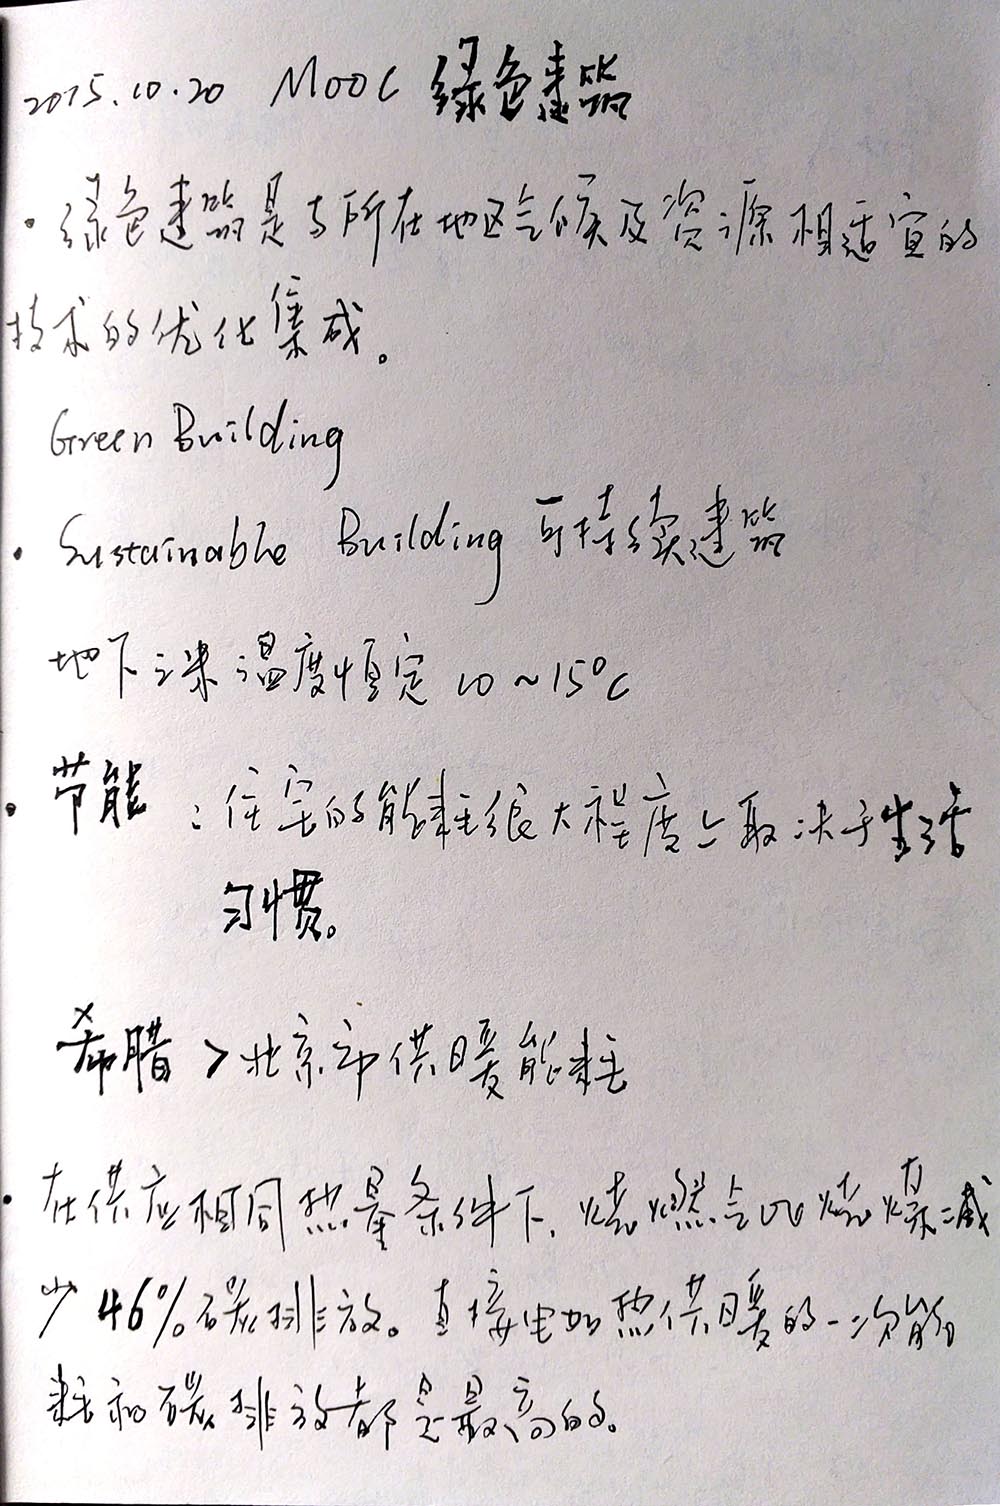 2015.10.20 MOOC 绿色建筑
· 绿色建筑是与所在地区气候及资源相适宜的
技术的优化集成。
Green Building
· Sustainable Building 可持续建筑
地下深 温度恒定 10~15°C
· 节能:住宅的能耗很大程度上取决于生活
习惯。
希腊 > 北京市供暖能耗
· 在供应相同热量条件下,烧燃气比烧煤减
少46%碳排放。直接电加热供暖的一次能
耗和碳排放都是最高的。